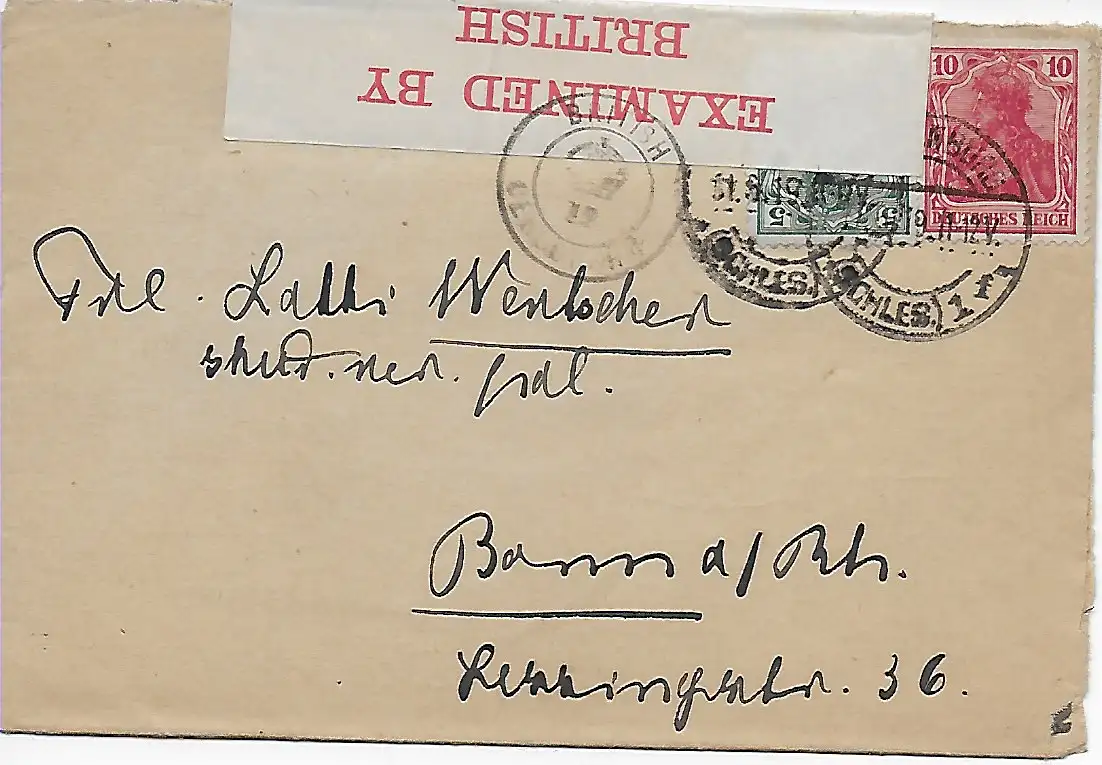 BRITISH
EXAMINED BY
10 10
DEUTSCHES REICH
5 5
BRITISH
19
(SCHLES.)
(SCHLES.) 1 f
Frl. Lotti Wentscher
stud. med. phil.
Bonn a/Rh.
Lessingstr. 36.